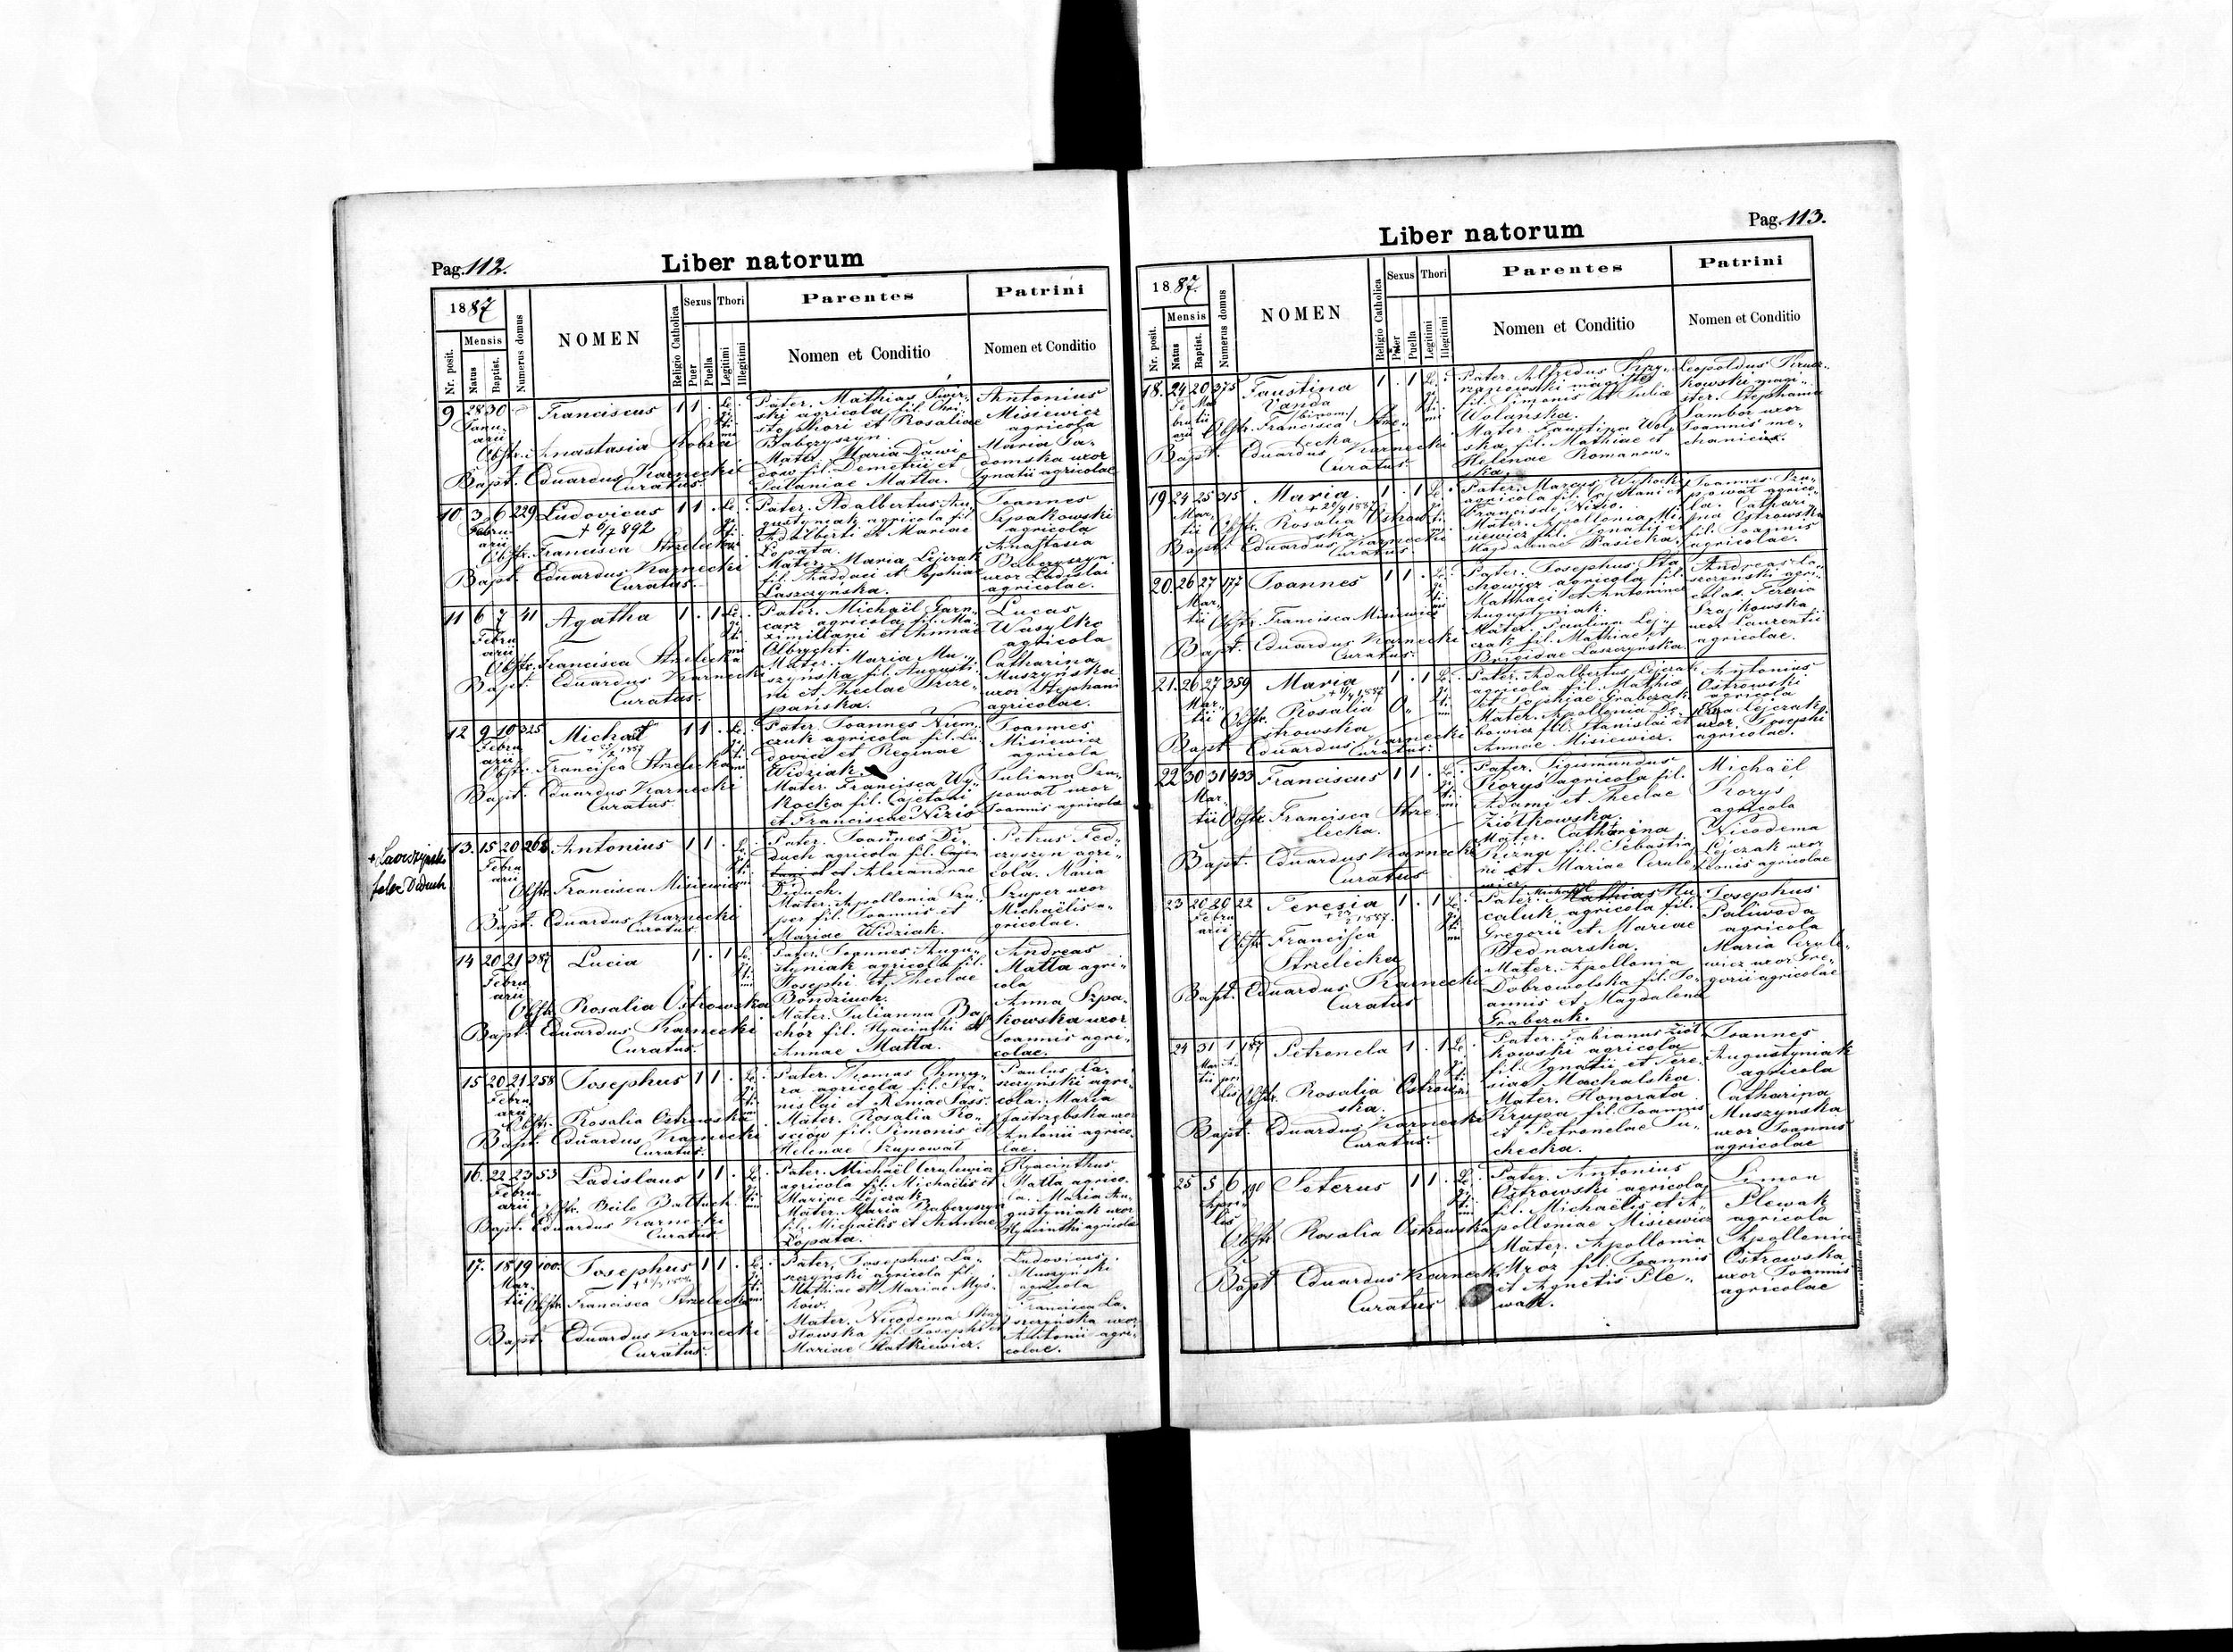 Pag. 112.
Liber natorum
1887
Mensis
Nr. posit.
Natus
Baptist.
Numerus domus
NOMEN
Religio Catholica
Sexus
Puer
Puella
Thori
Legitimi
Illegitimi
Parentes
Nomen et Conditio
Patrini
Nomen et Conditio
9 28 30 Franciscus 1 1
Januarii
Obstr. Anastasia Kobza
Bapt. Eduardus Karnecki
Curatus.
Pater. Mathias Swir-
ski agricola fil. Chri-
stophori et Rosaliae
Babczyszyn.
Mater. Maria Dawi-
dow fil. Demetrii et
Matta.
Antonius
Misiewicz
agricola
Maria
uxor
Ignatii agricolae
10 3 6 229 Ludovicus 1 1
Februarii
+ 6/7 892
Obstr. Francisca Strzelecka
Bapt. Eduardus Karnecki
Curatus.
Pater. Adalbertus Au-
gustyniak agricola fil.
Adalberti et Mariae
Łopata.
Mater. Maria Lejczak
fil. Thaddaei et Sophiae
Laszczyńska.
Joannes
Szpakowski
agricola
Anastasia
Babczyszyn
uxor Ladislai
agricolae.
11 6 7 41 Agatha 1 . 1
Februarii
Obstr. Francisca Strzelecka
Bapt. Eduardus Karnecki
Curatus.
Pater. Michaël Garn-
carz agricola fil. Ma-
ximiliani et Annae
Olbrycht.
Mater. Maria Mu-
szyńska fil. Augusti-
ni et Theclae Szcze-
pańska.
Lucas
Wasylko
agricola
Catharina
Muszyńska
uxor Stephani
agricolae.
12 9 10 325 Michael 1 1
Februarii
Obstr. Francisca Strzelecka
Bapt. Eduardus Karnecki
Curatus
Pater. Joannes Niem-
czuk agricola fil. Lu-
dovici et Reginae
Widziak.
Mater. Francisca Wy-
socka fil. Cajetani
et Franciscae Nizio
Joannes
Misiewicz
agricola
Juliana Szu-
powat uxor
Joannis agricolae
+ Laszczyńska
Diduch
13. 15 20 268 Antonius 1 1
Februarii
Obstr. Francisca Misiewicz
Bapt. Eduardus Karnecki
Curatus.
Pater. Joannes Di-
duch agricola fil.
Alexandrae
Diduch.
Mater. Apollonia Szu-
per fil. Joannis et
Mariae Widziak.
Petrus Fed-
czyszyn agri-
cola. Maria
Szuper uxor
Michaëlis a-
gricolae.
14 20 21 387 Lucia 1 . 1
Februarii
Obstr. Rosalia Ostrowska
Bapt. Eduardus Karnecki
Curatus.
Pater. Joannes Augu-
styniak agricola fil.
Josephi et Theclae
Bondziuch.
Mater. Julianna Ba-
chór fil. Hyacinthi et
Annae Matta.
Andreas
Matta agri-
cola
Anna Szpa-
kowska uxor
Joannis agri-
colae.
15 20 21 258 Josephus 1 1
Februarii
Obstr. Rosalia Ostrowska
Bapt. Eduardus Karnecki
Curatus.
Pater. Thomas Chmu-
ra agricola fil. Sta-
nislai et Xeniae Sass.
Mater. Rosalia Ko-
sciow fil. Simonis et
Helenae Szupowat
Paulus La-
szczyński agri-
cola. Maria
Jastrzębska uxor
Antonii agrico-
lae.
16. 22 23 53 Ladislaus 1 1
Februarii
Obstr. Beile Battuch
Bapt. Eduardus Karnecki
Curatus
Pater. Michaël Cerulewicz
agricola fil. Michaëlis et
Mariae Lejczak
Mater. Maria Babczyszyn
fil. Michaëlis et Annae
Łopata.
Hyacinthus
Matta agrico-
la. Maria Au-
gustyniak uxor
Hyacinthi agricolae
17. 18 19 100. Josephus 1 1
Martii
Obstr. Francisca Strzelecka
Bapt. Eduardus Karnecki
Curatus.
Pater. Josephus La-
szczyński agricola fil.
Mathiae et Mariae Mys-
ków.
Mater. Nicodema
fil. Josephi et
Mariae Statkiewicz.
Ludovicus
Muszyński
agricola
Francisca La-
szczyńska uxor
Antonii agri-
colae.
Liber natorum
Pag. 113.
1887
Mensis
Nr. posit.
Natus
Baptist.
Numerus domus
NOMEN
Religio Catholica
Sexus
Puer
Puella
Thori
Legitimi
Illegitimi
Parentes
Nomen et Conditio
Patrini
Nomen et Conditio
18. 24 20 375 Faustina 1 . 1
Vanda
/binom/
Obstr. Francisca Strze-
lecka
Bapt. Eduardus Karnecki
Curatus.
Pater. Alfredus
magister
fil. Simonis et Juliae
Wolańska.
Mater. Faustina Wol-
ska fil. Mathiae et
Helenae Romanow-
ska.
Leopoldus
kowski magi-
ster. Stephania
Sambor uxor
Joannis me-
chanicis.
19 24 25 315 Maria 1 . 1
Martii
Obstr. Rosalia Ostrow-
ska
Bapt. Eduardus Karnecki
Curatus
Pater. Marcus Wysock
agricola fil. Cajetani et
Franciscae Nizio.
Mater. Apollonia Mi-
siewicz fil. Ignatii et
Magdalenae Pasieka.
Joannes Szu-
powat agrico-
la. Cathari-
na Ostrowska
fil. Joannis
agricolae.
20. 26 27 177 Joannes 1 1
Martii
Obstr. Francisca Misiewicz
Bapt. Eduardus Karnecki
Curatus.
Pater. Josephus Sta-
chowicz agricola fil.
Matthaei et Antoninae
Augustyniak.
Mater. Paulina Lej-
czak fil. Mathiae et
Brigidae Laszczyńska.
Andreas La-
szczyński agri-
colas. Teresia
Szajkowska
uxor Laurentii
agricolae.
21. 26 27 359 Maria 1 . 1
Martii
Obstr. Rosalia O-
strowska
Bapt. Eduardus Karnecki
Curatus.
Pater. Adalbertus Lejczak
agricola fil. Mathiae
et Sophiae Grabczak
Mater. Apollonia Dę-
bowicz fil. Stanislai et
Annae Misiewicz.
Antonius
Ostrowski
agricola
Eva Lejczak
uxor Josephi
agricolae.
22 30 31 433 Franciscus 1 1
Martii
Obstr. Francisca Strze-
lecka.
Bapt. Eduardus Karnecki
Curatus
Pater. Sigismundus
Korys agricola fil.
Adami et Theclae
Ziółkowska.
Mater. Catharina
fil. Sebastia-
ni et Mariae Cerule-
wicz
Michaël
Korys
agricola
Nicodema
Lejczak uxor
Leonis agricolae
23 20 20 22 Teresia 1 . 1
Februarii
Obstr. Francisca
Strzelecka
Bapt. Eduardus Karnecki
Curatus
Pater. Michaël Mathias Hu-
caluk agricola fil.
Gregorii et Mariae
Bednarska.
Mater. Apollonia
Dobrowolska fil. Jo-
annis et Magdalena
Grabczak.
Josephus
Paliwoda
agricola
Maria Cerule-
wicz uxor Gre-
gorii agricolae
24 31 1 187 Petronela 1 . 1
Martii Aprilis
Obstr. Rosalia Ostrow-
ska.
Bapt. Eduardus Karnecki
Curatus.
Pater. Fabianus Ziół-
kowski agricola
fil. Ignatii et Tere-
siae Machalska.
Mater. Honorata
Krupa fil. Joannis
et Petronelae Su-
checka.
Joannes
Augustyniak
agricola
Catharina
Muszyńska
uxor Joannis
agricolae
25 5 6 Soterus 1 1
Aprilis
Obstr. Rosalia Ostrowska
Bapt. Eduardus Karnecki
Curatus
Pater. Antonius
Ostrowski agricola
fil. Michaëlis et A-
polloniae Misiewicz
Mater. Apollonia
Mroz fil. Joannis
et Agnetis Ple-
wak.
Simon
Plewak
agricola
Apollonia
Ostrowska
uxor Joannis
agricolae